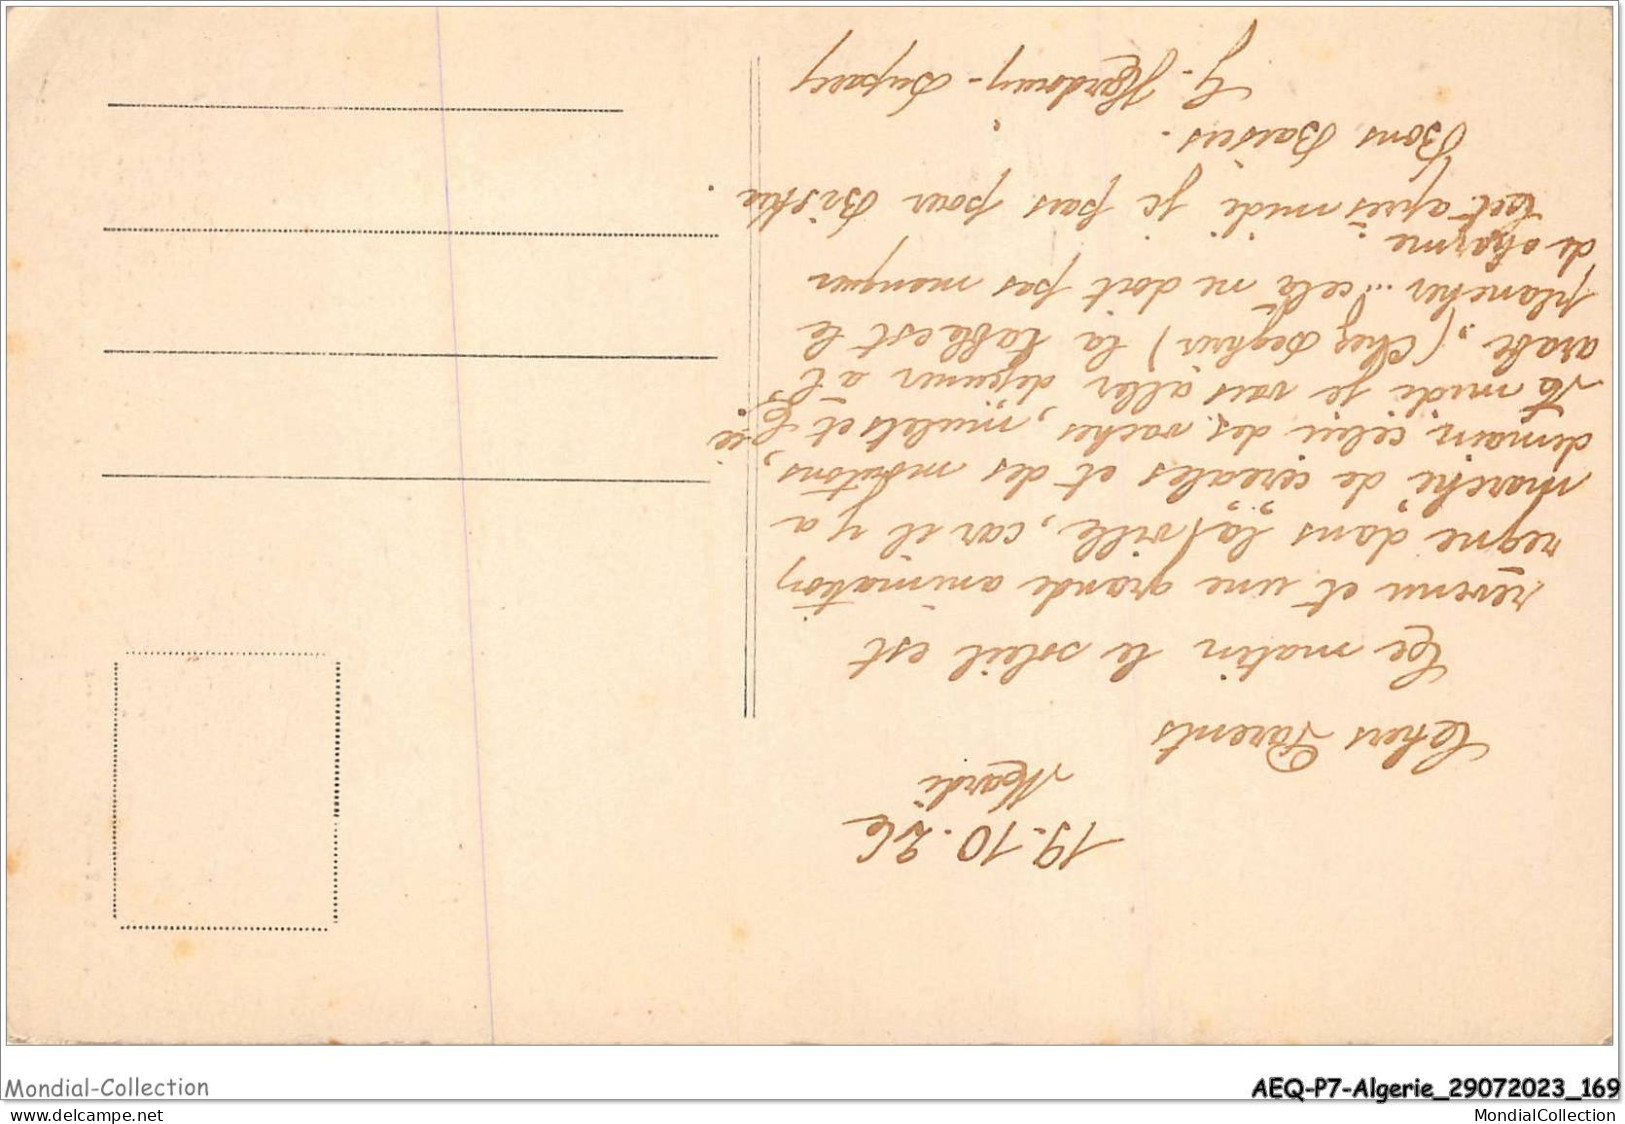 19.10.26
Mardi
Chers Parents
Ce matin le soleil est
revenu et une grande animation
règne dans la ville, car il y a
marché de céréales et des moutons,
demain celui des vaches, mulets et
A midi je vais aller déjeuner à l'
arabe, (chez Seghir) la table est le
plancher... celà ne doit pas manquer
de charme.
Cet après midi je pars pour Biskra
Bons Baisers.
G. Hardouin-Duparc
Mondial-Collection
AEQ-P7-Algerie_29072023_169
www.delcampe.net
MondialCollection